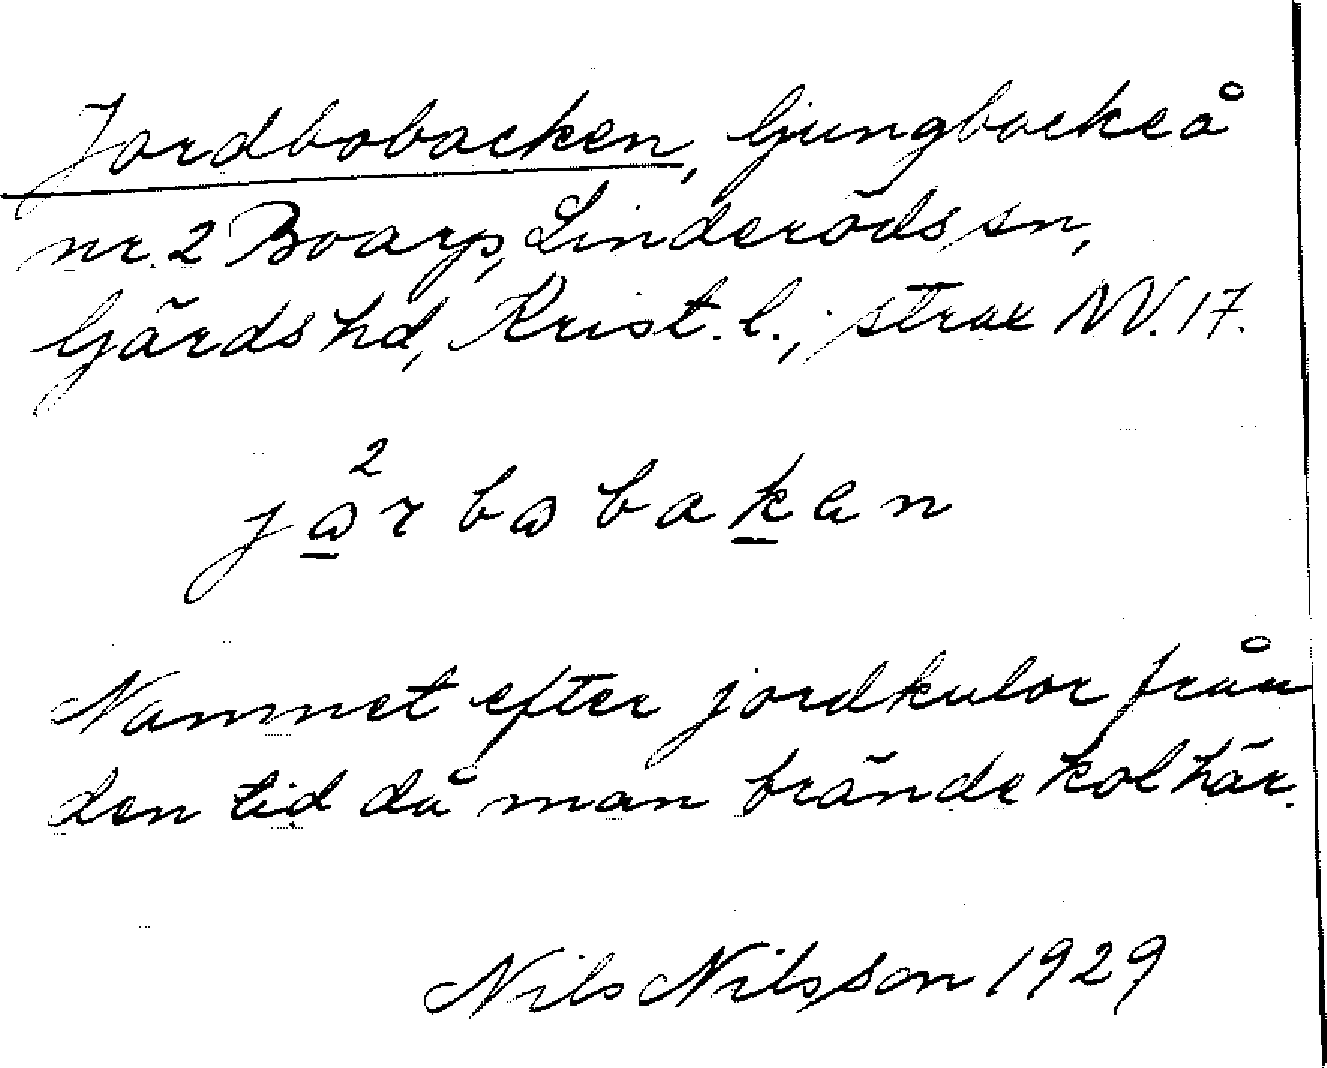 Jordbobacken, ljungbacke å
nr. 2 Boarp, Linderöds sn,
Gärds hd, Krist. l., strax NV. 17.
2
jɷrbɷbakan
Namnet efter jordkulor från
den tid då man brände kol här.
Nils Nilsson 1929